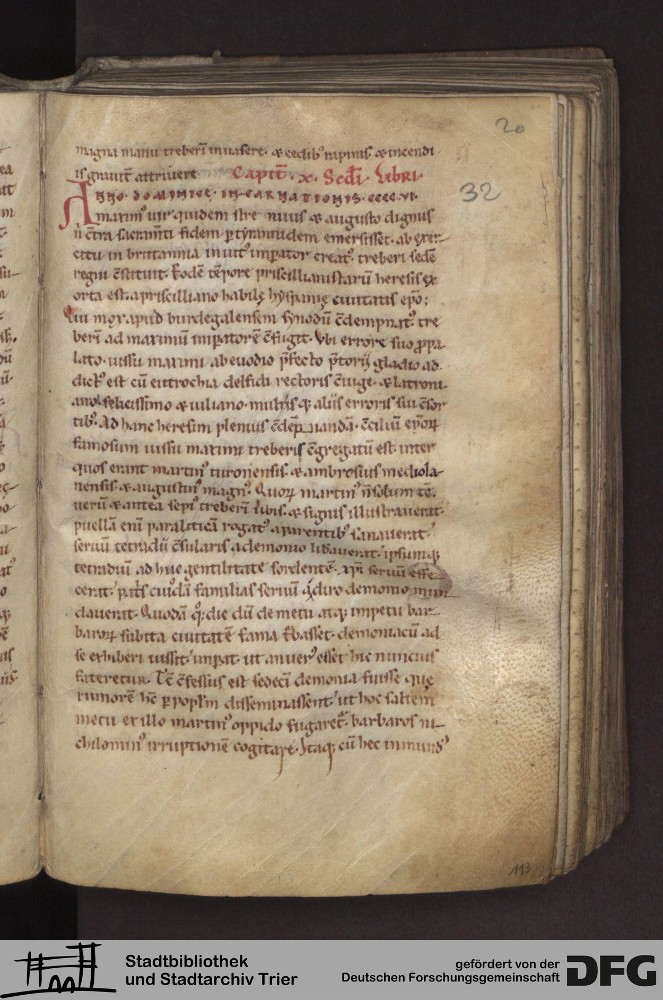 20
32
magna manu treberī inuasere. & cedib; rapinis. & incendi
is grauit̄ attriuere. Capit̄. x. Scd̄i. Libri.
Anno. dominice. incarnationis. cccc. vi.
maxim' uir quidem stre nuus & augusto dignus
n̄ c̄tra sacram̄ti fidem p̱ tyrannidem emersisset. ab exer
citu in britannia inuit' imp̱ator creat'. treberi sedē
regni c̄stituit. Eodē tēpore priscillianistarū heresis ex
orta est. a priscilliano habilę hyspanię ciuitatis ep̄o;
Qui mox apud burdegalensem synodū c̄dempnat'. tre
berī ad maximū imp̱atorē c̄fugit. Vbi errore suo p̱pa
lato. iussu maximi ab euodio p̄fecto p̄torij gladio ad
dict' est cū eutrochia delfidi rectoris c̄iuge. & latroni
ano. felicissimo & iuliano. multis q; aliis erroris sui c̄sor
tib;. Ad hanc heresim plenius c̄dēp̱nandā. c̄ciliū ep̄oꝝ
famosum iussu maximi treberis c̄gregatū est. inter
quos erant martin' turonensis. & ambrosius mediola
nensis. & augustin' magn'. Quoꝝ martin' n̄ solum tē.
uerū & antea sepi' treberī ūbis. & signis illustrauerat.
puellā enī paraliticā rogat' a parentib; sanauerat.
seruū tetradij c̄sularis a demonio liḇauerat. ipsum q;
tetradiū adhuc gentilitate sordentē. xp̄i seruū effe
cerat. pat̄s cui'dā familias seruū q̇ diro demonio mun
dauerat. Quodā q; die dū de metu atq; impetu bar
baroꝝ subita ciuitatē fama t̄basset. demoniacū ad
se exhiberi iussit. imp̱at ut an uer' esset hic nuncius
fateretur. Tc̄ c̄fessus est sedecī demonia fuisse quę
rumorē hc̄ p̱ pop̄lm disseminassent. ut hoc saltem
metu ex illo martin' oppido fugaret'. barbaros ni
chilomin' irruptionē cogitare. Itaq; cū hec inmund'
113
Stadtbibliothek
und Stadtarchiv Trier
gefördert von der
Deutschen Forschungsgemeinschaft
DFG